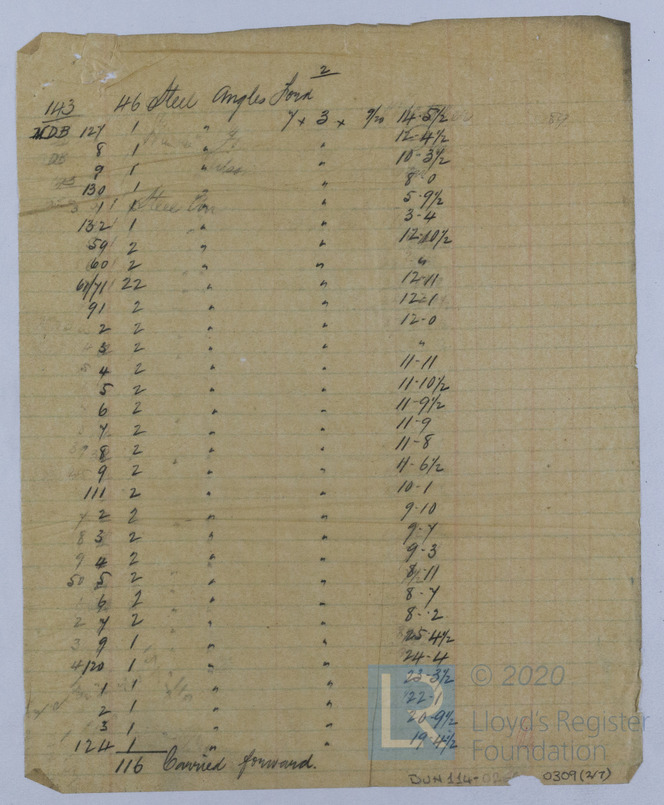 2
143 46 Steel Angles Ford
UDB 127 1 " 7 x 3 x 9/20 14-5½
8 1 " " 12-4½
9 1 " " 10-3½
130 1 " " 8-0
1 1 " " 5-9½
132 1 " " 3-4
59 2 " " 12-10½
60 2 " " "
61/71 22 " " 12-11
91 2 " " 12-1
2 2 " " 12-0
3 2 " " "
4 2 " " 11-11
5 2 " " 11-10½
6 2 " " 11-9½
7 2 " " 11-9
8 2 " " 11-8
9 2 " " 11-6½
111 2 " " 10-1
2 2 " " 9-10
3 2 " " 9-7
4 2 " " 9-3
5 2 " " 8-11
6 2 " " 8-7
7 2 " " 8-2
9 1 " " 25-4½
120 1 " " 24-4
1 1 " " 23-3½
2 1 " " 22-1
3 1 " " 20-9½
124 1 " " 19-4½
116 Carried forward.
LR © 2020
Lloyd's Register
Foundation
DUN114- 0309(2/7)